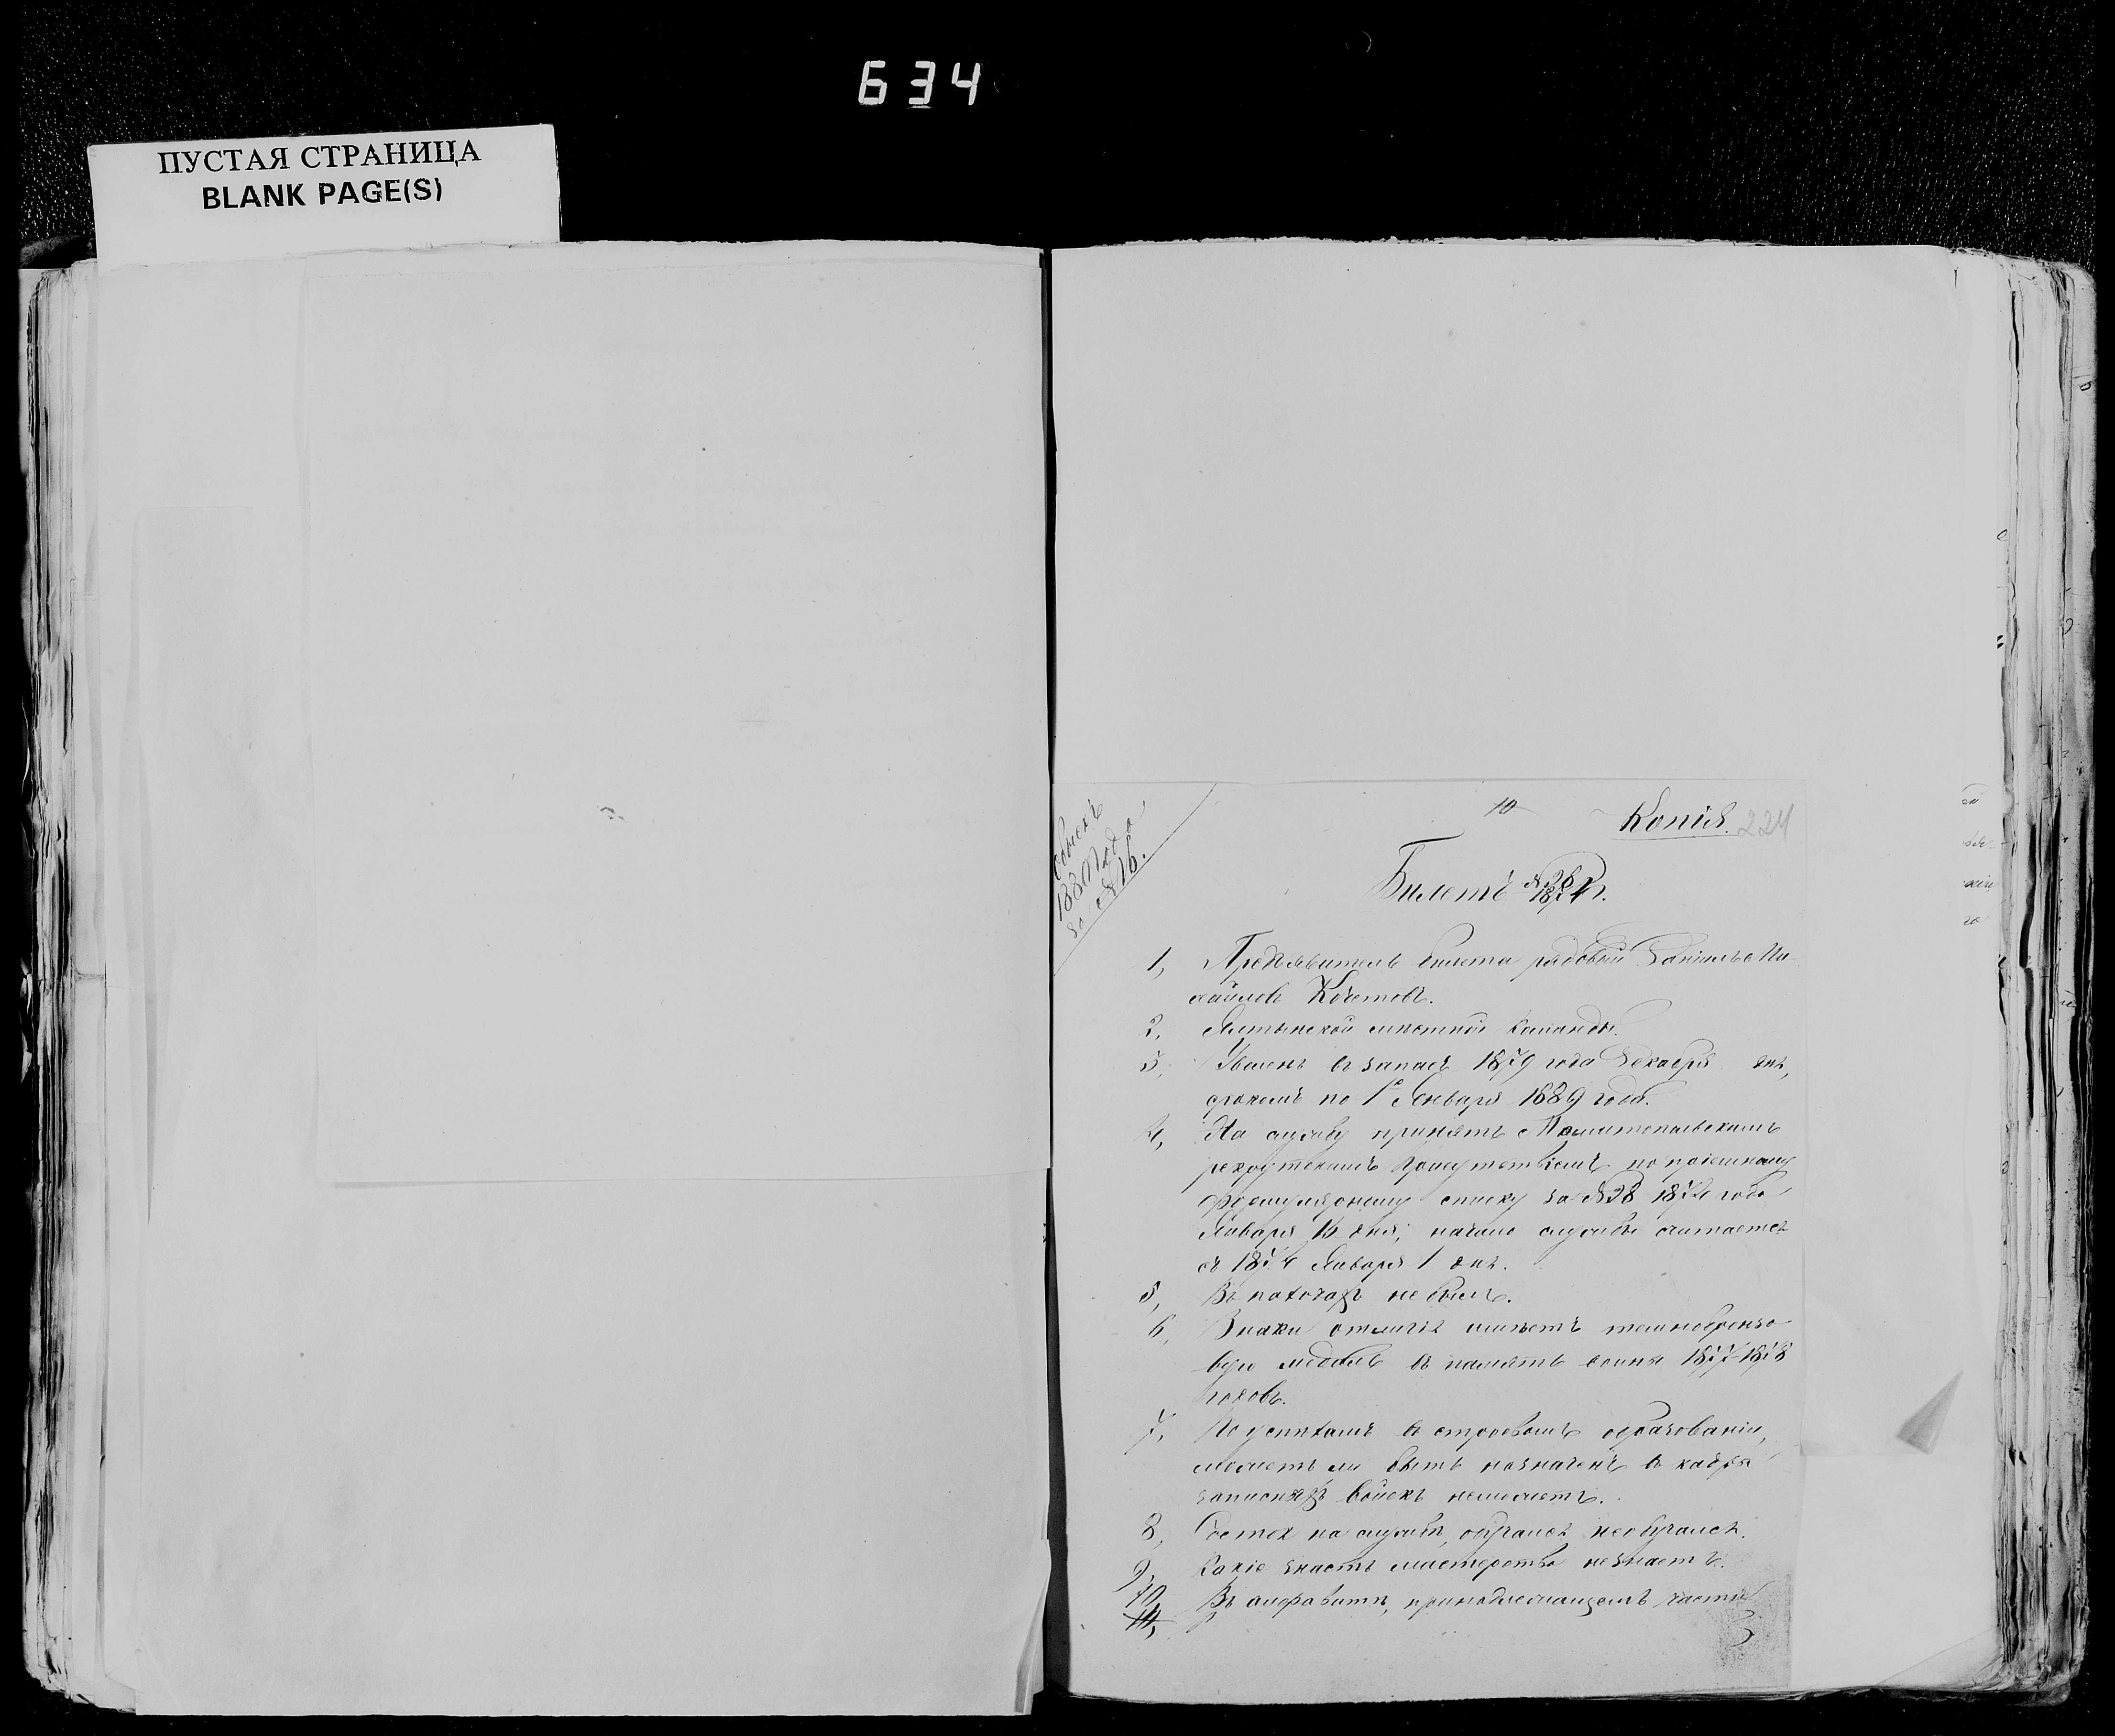 634
ПУСТАЯ СТРАНИЦА
BLANK PAGE(S)
10
Копія. 224
1881 года
за №16.
Билетъ
1, Предъявитель билета рядовой Даніилъ Ми-
хайловъ Кочетовъ.
2, Ялтынской мѣстной команды.
3, Уволенъ въ запасъ 1879 года Декабря дня,
срокомъ по 1е Января 1889 года.
4, На службу принятъ Мелитопольскимъ
рекрутскимъ присутствіемъ по пріемному
формулярному списку за №28 1874 года
Января 15 дня, начало службы считается
съ 1874 Января 1 дня.
5, Въ походахъ не былъ.
6, Знаки отличія имѣетъ темнобронзо-
вую медаль въ память войны 1877-1878
годовъ.
7, По успѣхамъ въ строевомъ образованіи,
можетъ ли быть назначенъ въ кадры
запасныхъ войскъ неможетъ.
8, на службѣ, обучался необучался.
9, Какіе знаетъ мастерства незнаетъ.
10, Въ алфавитѣ, принадлежащемъ части